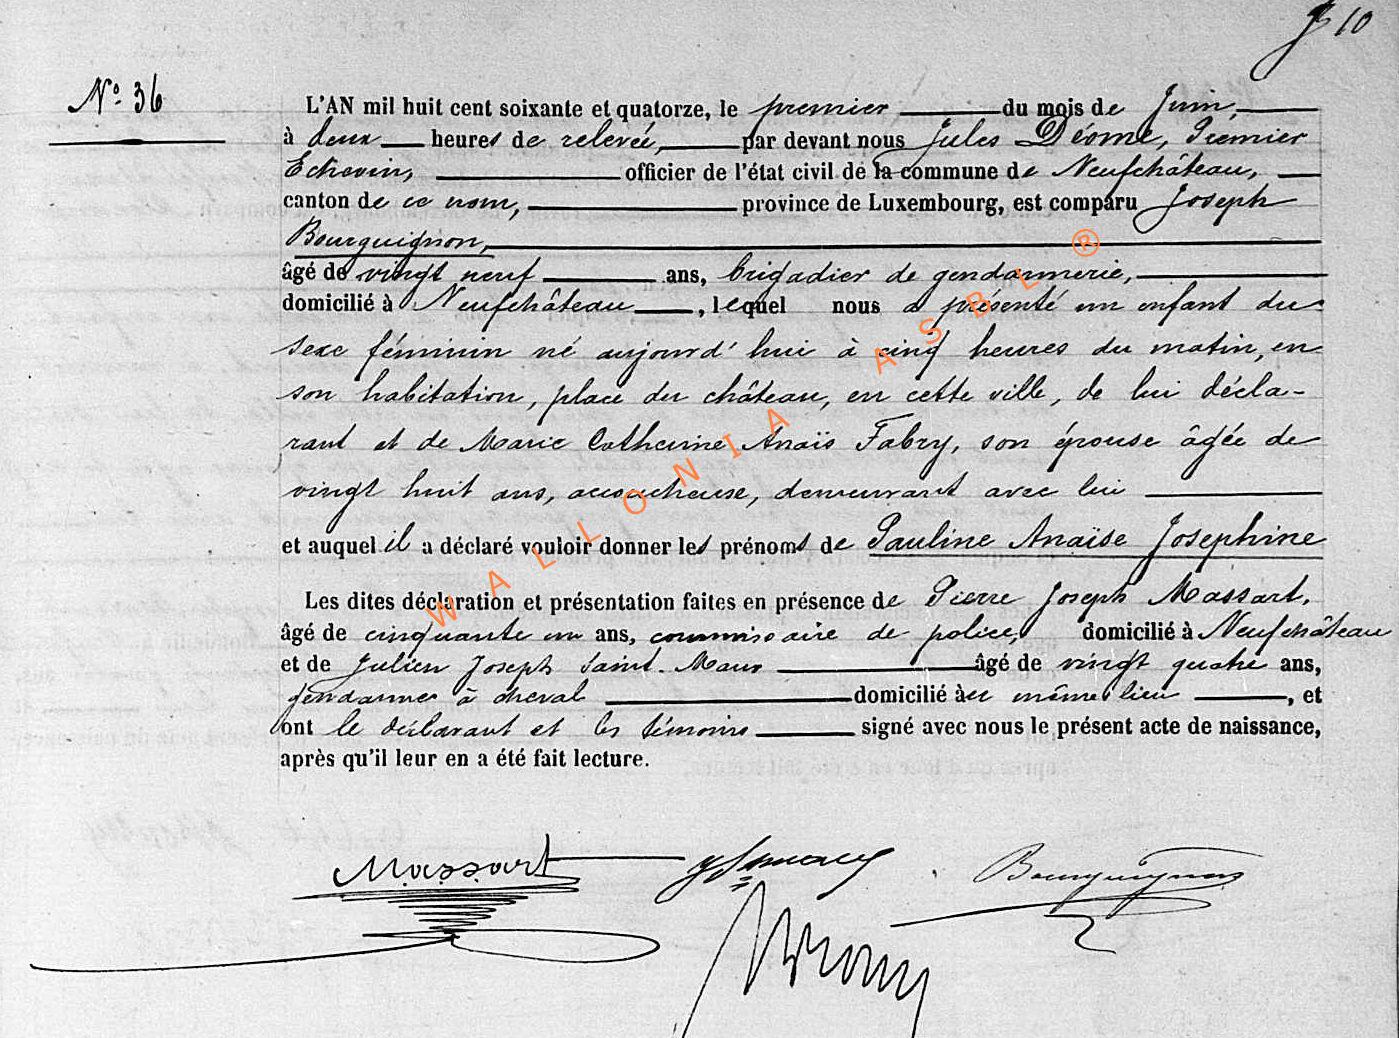 10
N° 36
L'AN mil huit cent soixante et quatorze, le premier du mois de Juin,
à deux heures de relevée, par devant nous Jules Déome, Premier
Echevin, officier de l'état civil de la commune de Neufchâteau,
canton de ce nom, province de Luxembourg, est comparu Joseph
Bourguignon,
âgé de vingt neuf ans, brigadier de gendarmerie,
domicilié à Neufchâteau, lequel nous a présenté un enfant du
sexe féminin né aujourd'hui à cinq heures du matin, en
son habitation, place du château, en cette ville, de lui décla-
rant et de Marie Catherine Anaïs Fabry, son épouse âgée de
vingt huit ans, accoucheuse, demeurant avec lui
et auquel il a déclaré vouloir donner les prénoms de Pauline Anaïse Josephine
Les dites déclaration et présentation faites en présence de Pierre Joseph Massart,
âgé de cinquante un ans, commissaire de police, domicilié à Neufchâteau
et de Julien Joseph Saint-Maux âgé de vingt quatre ans,
gendarme à cheval domicilié au même lieu, et
ont le déclarant et les témoins signé avec nous le présent acte de naissance,
après qu'il leur en a été fait lecture.
Massart Bourguignon
WALLONIA ASBL ®